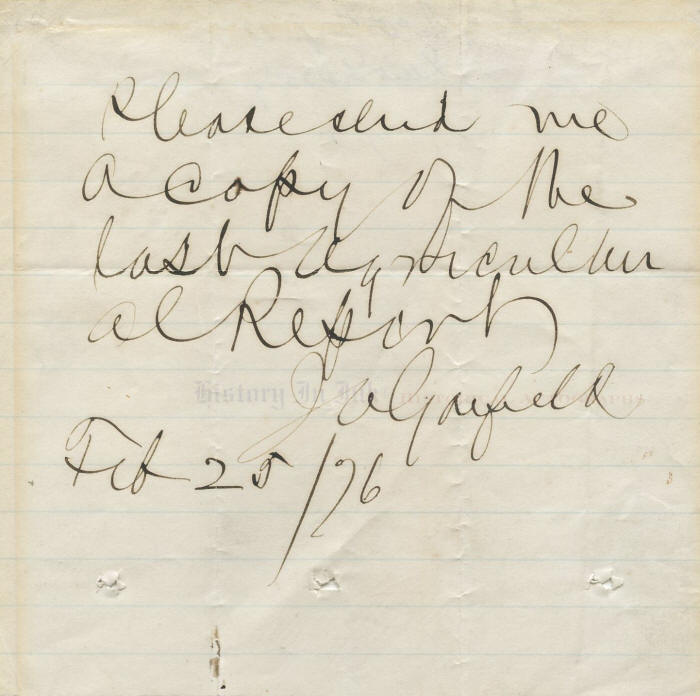 Please send me
a copy of the
last Agricultur
al Report
J A Garfield
History In Ink
Feb 25/76